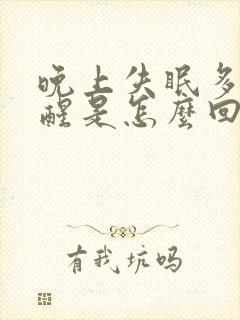 晚上失眠多
醒是怎麼回
有我坑吗